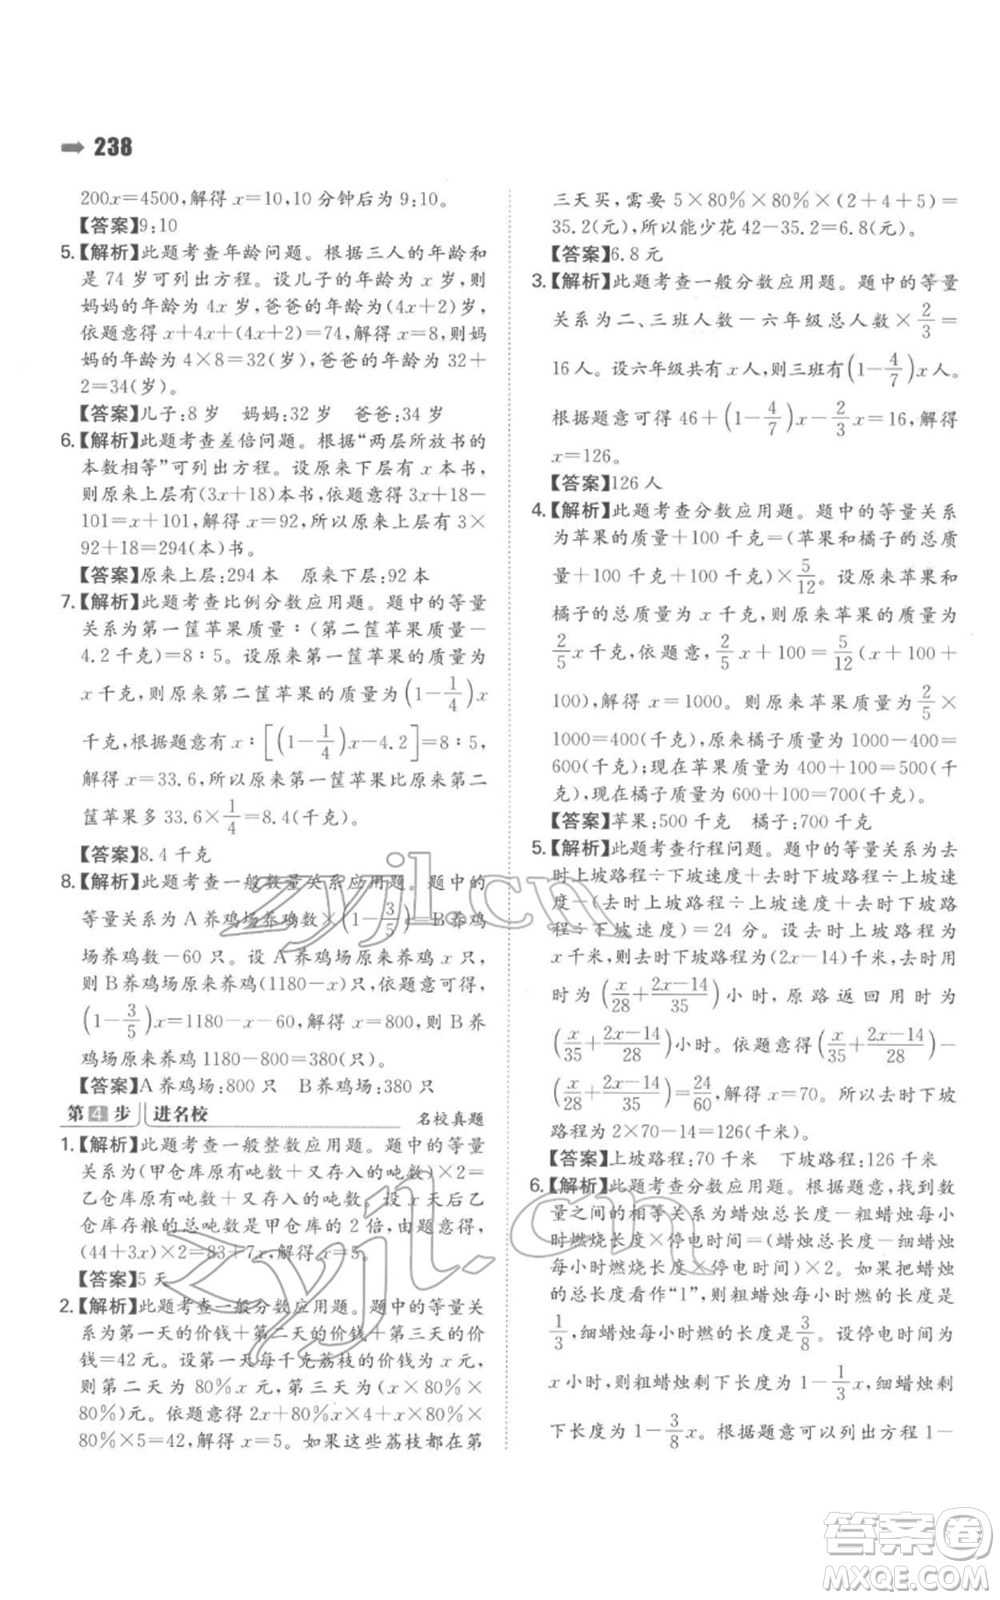 238
200x=4500,解得 x=10,10 分钟后为 9:10。
【答案】9:10
5.【解析】此题考查年龄问题。根据三人的年龄和
是 74 岁可列出方程。设儿子的年龄为 x 岁,则
妈妈的年龄为 4x 岁,爸爸的年龄为(4x+2)岁,
依题意得 x+4x+(4x+2)=74,解得 x=8,则妈
妈的年龄为 4×8=32(岁),爸爸的年龄为 32+
2=34(岁)。
【答案】儿子:8 岁 妈妈:32 岁 爸爸:34 岁
6.【解析】此题考查差倍问题。根据“两层所放书的
本数相等”可列出方程。设原来下层有 x 本书,
则原来上层有(3x+18)本书,依题意得 3x+18-
101=x+101,解得 x=92,所以原来上层有 3×
92+18=294(本)书。
【答案】原来上层:294 本 原来下层:92 本
7.【解析】此题考查比例分数应用题。题中的等量
关系为第一筐苹果质量:(第二筐苹果质量-
4.2 千克)=8:5。设原来第一筐苹果的质量为
x 千克,则原来第二筐苹果的质量为(1-1/4)x
千克,根据题意有 x:[(1-1/4)x-4.2]=8:5,
解得 x=33.6,所以原来第一筐苹果比原来第二
筐苹果多 33.6×1/4=8.4(千克)。
【答案】8.4 千克
8.【解析】此题考查一般数量关系应用题。题中的
等量关系为 A 养鸡场养鸡数×(1-3/5)=B 养鸡
场养鸡数-60 只。设 A 养鸡场原来养鸡 x 只,
则 B 养鸡场原来养鸡(1180-x)只,依题意可得,
(1-3/5)x=1180-x-60,解得 x=800,则 B 养
鸡场原来养鸡 1180-800=380(只)。
【答案】A 养鸡场:800 只 B 养鸡场:380 只
第4步 进名校 名校真题
1.【解析】此题考查一般整数应用题。题中的等量
关系为(甲仓库原有吨数+又存入的吨数)×2=
乙仓库原有吨数+又存入的吨数。设 x 天后乙
仓库存粮的总吨数是甲仓库的 2 倍,由题意得,
(44+3x)×2=83+7x,解得 x=5。
【答案】5 天
2.【解析】此题考查一般分数应用题。题中的等量关
系为第一天的价钱+第二天的价钱+第三天的价
钱=42 元。设第一天每千克荔枝的价钱为 x 元,
则第二天为 80%x 元,第三天为(x×80%×
80%)元。依题意得 2x+80%x×4+x×80%×
80%×5=42,解得 x=5。如果这些荔枝都在第
三天买,需要 5×80%×80%×(2+4+5)=
35.2(元),所以能少花 42-35.2=6.8(元)。
【答案】6.8 元
3.【解析】此题考查一般分数应用题。题中的等量
关系为二、三班人数-六年级总人数×2/3=
16 人。设六年级共有 x 人,则三班有(1-4/7)x 人。
根据题意可得 46+(1-4/7)x-2/3x=16,解得
x=126。
【答案】126 人
4.【解析】此题考查分数应用题。题中的等量关系
为苹果的质量+100 千克=(苹果和橘子的总质
量+100 千克+100 千克)×5/12。设原来苹果和
橘子的总质量为 x 千克,则原来苹果的质量为
2/5x 千克,依题意,2/5x+100=5/12(x+100+
100),解得 x=1000。则原来苹果质量为2/5×
1000=400(千克),原来橘子质量为 1000-400=
600(千克);现在苹果的质量为 400+100=500(千
克),现在橘子的质量为 600+100=700(千克)。
【答案】苹果:500 千克 橘子:700 千克
5.【解析】此题考查行程问题。题中的等量关系为去
时上坡路程÷上坡速度+去时下坡路程÷下坡速
度-(去时下坡路程÷上坡速度+去时上坡路
程÷下坡速度)=24 分。设去时上坡路程为
x 千米,则去时下坡路程为(2x-14)千米,去时用
时为(x/28+2x-14/35)小时,原路返回用时为
(x/35+2x-14/28)小时。依题意得(x/28+2x-14/35)-
(x/35+2x-14/28)=24/60,解得 x=70。所以去时下坡
路程为 2×70-14=126(千米)。
【答案】上坡路程:70 千米 下坡路程:126 千米
6.【解析】此题考查分数应用题。根据题意,找到数
量之间的相等关系为蜡烛总长度-粗蜡烛每小
时燃烧长度×停电时间=(蜡烛总长度-细蜡烛
每小时燃烧长度×停电时间)×2。如果把蜡烛
的总长度看作“1”,则粗蜡烛每小时燃的长度是
1/3,细蜡烛每小时燃的长度是3/8。设停电时间为
x 小时,则粗蜡烛剩下长度为 1-1/3x,细蜡烛剩
下长度为 1-3/8x。根据题意可以列出方程 1-
zyjl.cn
zyjl.cn
答案圈
MXQE.COM